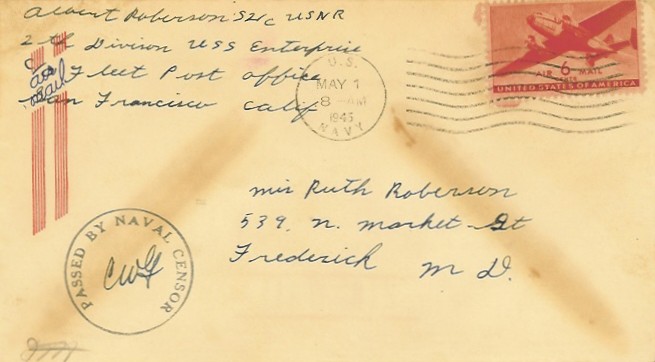 Albert Roberson S2/c USNR
2nd Divison USS Enterprise
c/o Fleet Post office
San Francisco Calif
air
mail
U.S.
MAY 1
8 AM
1945
NAVY
AIR 6¢ MAIL
UNITED STATES OF AMERICA
mis Ruth Roberson
539. N. Market St
Frederick M D.
PASSED BY NAVAL CENSOR